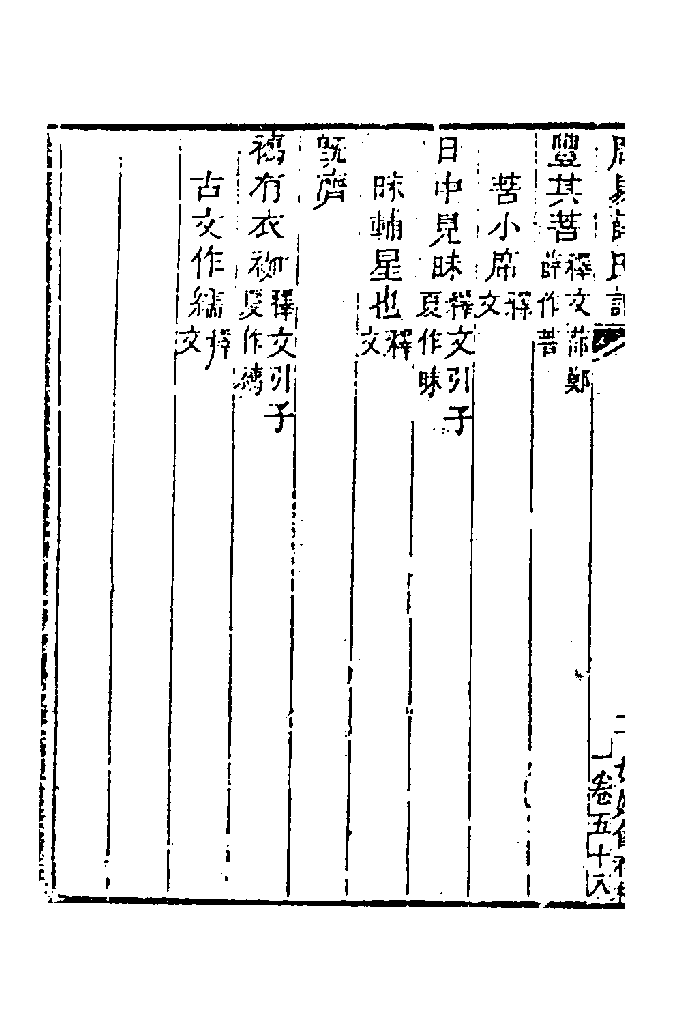 周易薛氏記
豐其菩釋文蔀鄭薛作菩
菩小席釋文
日中見昧釋文引子夏作昧
昧輔星也釋文
既濟
襦有衣袽釋文引子夏作襦
古文作繻釋文
二
卷五十八